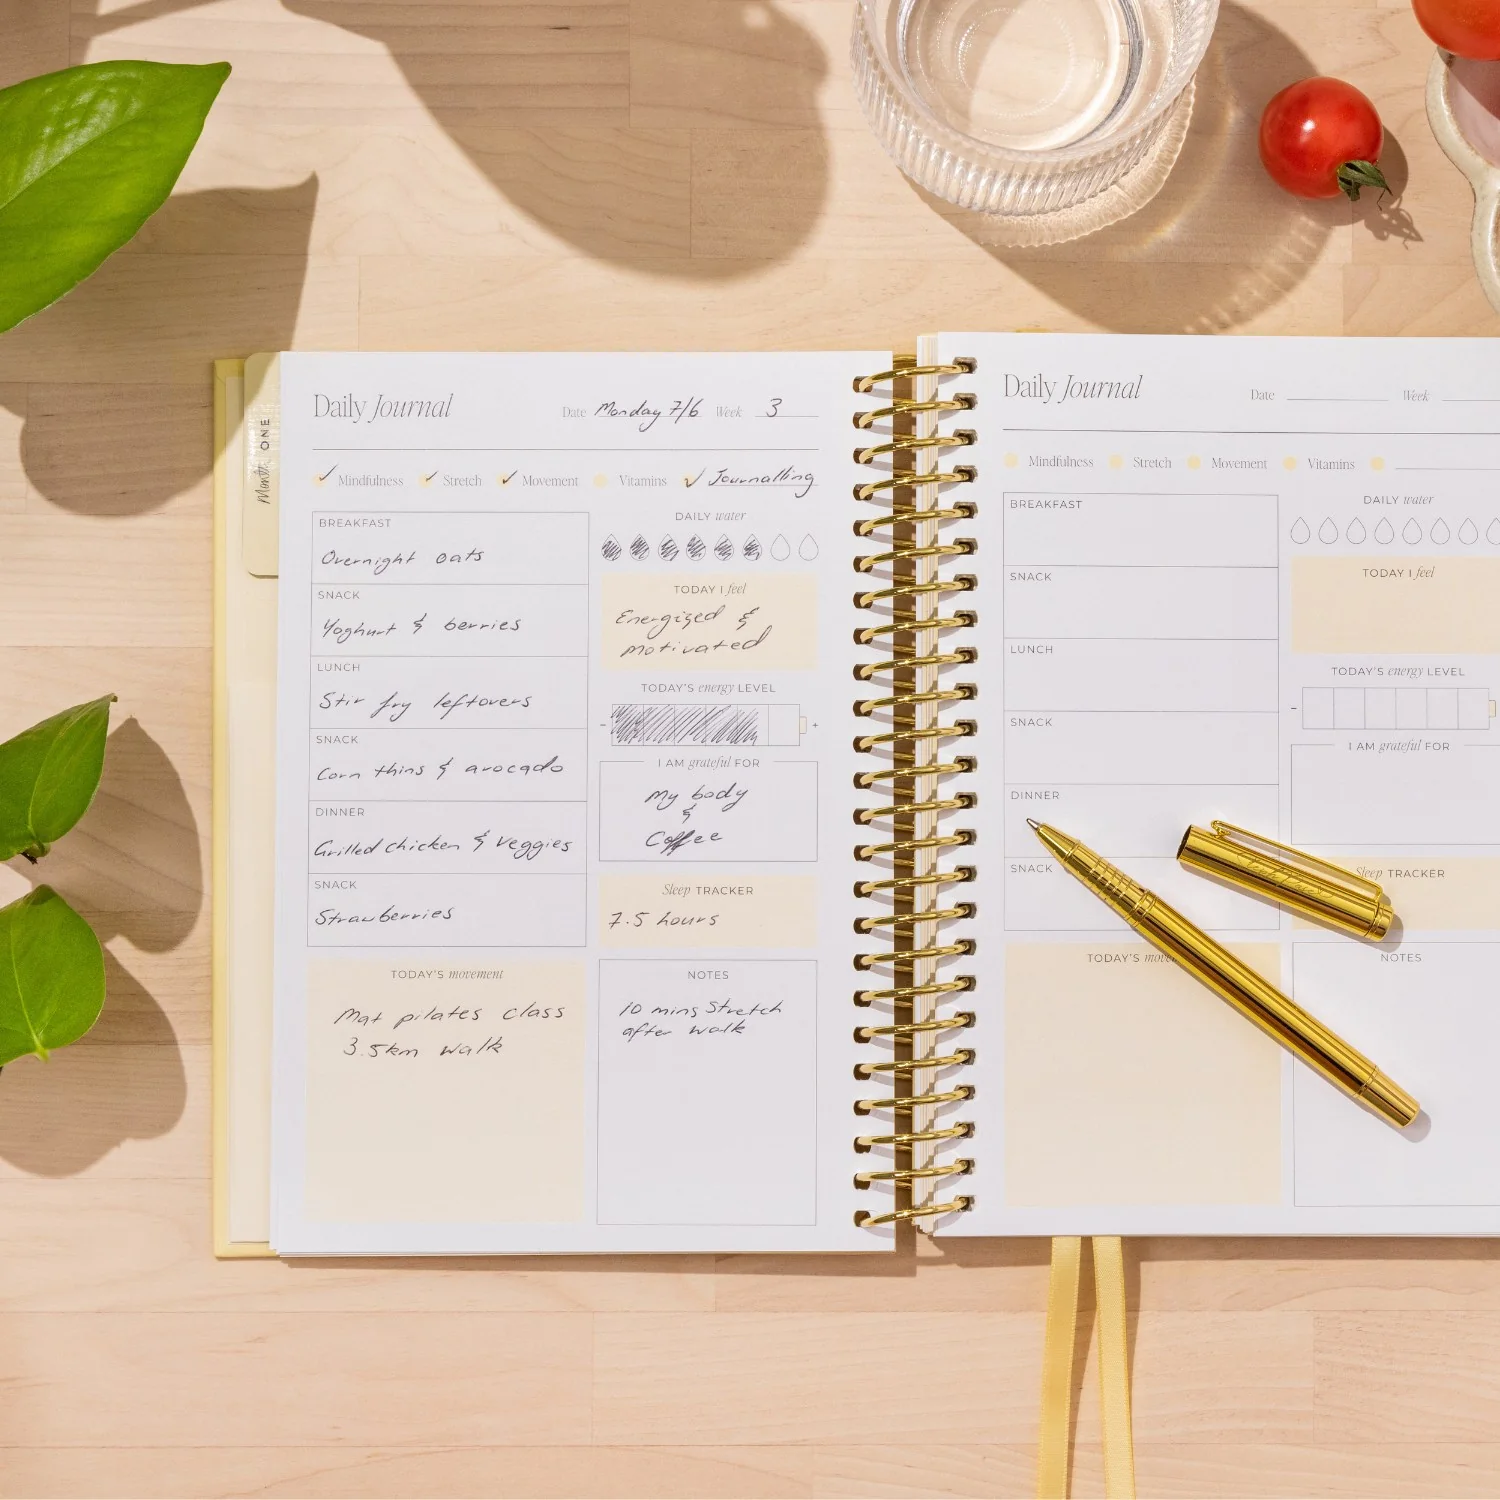 Month ONE
Daily Journal
Date Monday 7/6 Week 3
Mindfulness Stretch Movement Vitamins Journalling
BREAKFAST
Overnight oats
SNACK
Yoghurt & berries
LUNCH
Stir fry leftovers
SNACK
Corn thins & avocado
DINNER
Grilled chicken & veggies
SNACK
Strawberries
DAILY water
TODAY I feel
Energized &
motivated
TODAY'S energy LEVEL
- +
I AM grateful FOR
My body
&
Coffee
Sleep TRACKER
7.5 hours
TODAY'S movement
Mat pilates class
3.5km walk
NOTES
10 mins Stretch
after walk
Daily Journal
Date Week
Mindfulness Stretch Movement Vitamins
BREAKFAST
SNACK
LUNCH
SNACK
DINNER
SNACK
DAILY water
TODAY I feel
TODAY'S energy LEVEL
-
I AM grateful FOR
Sleep TRACKER
TODAY'S move
NOTES